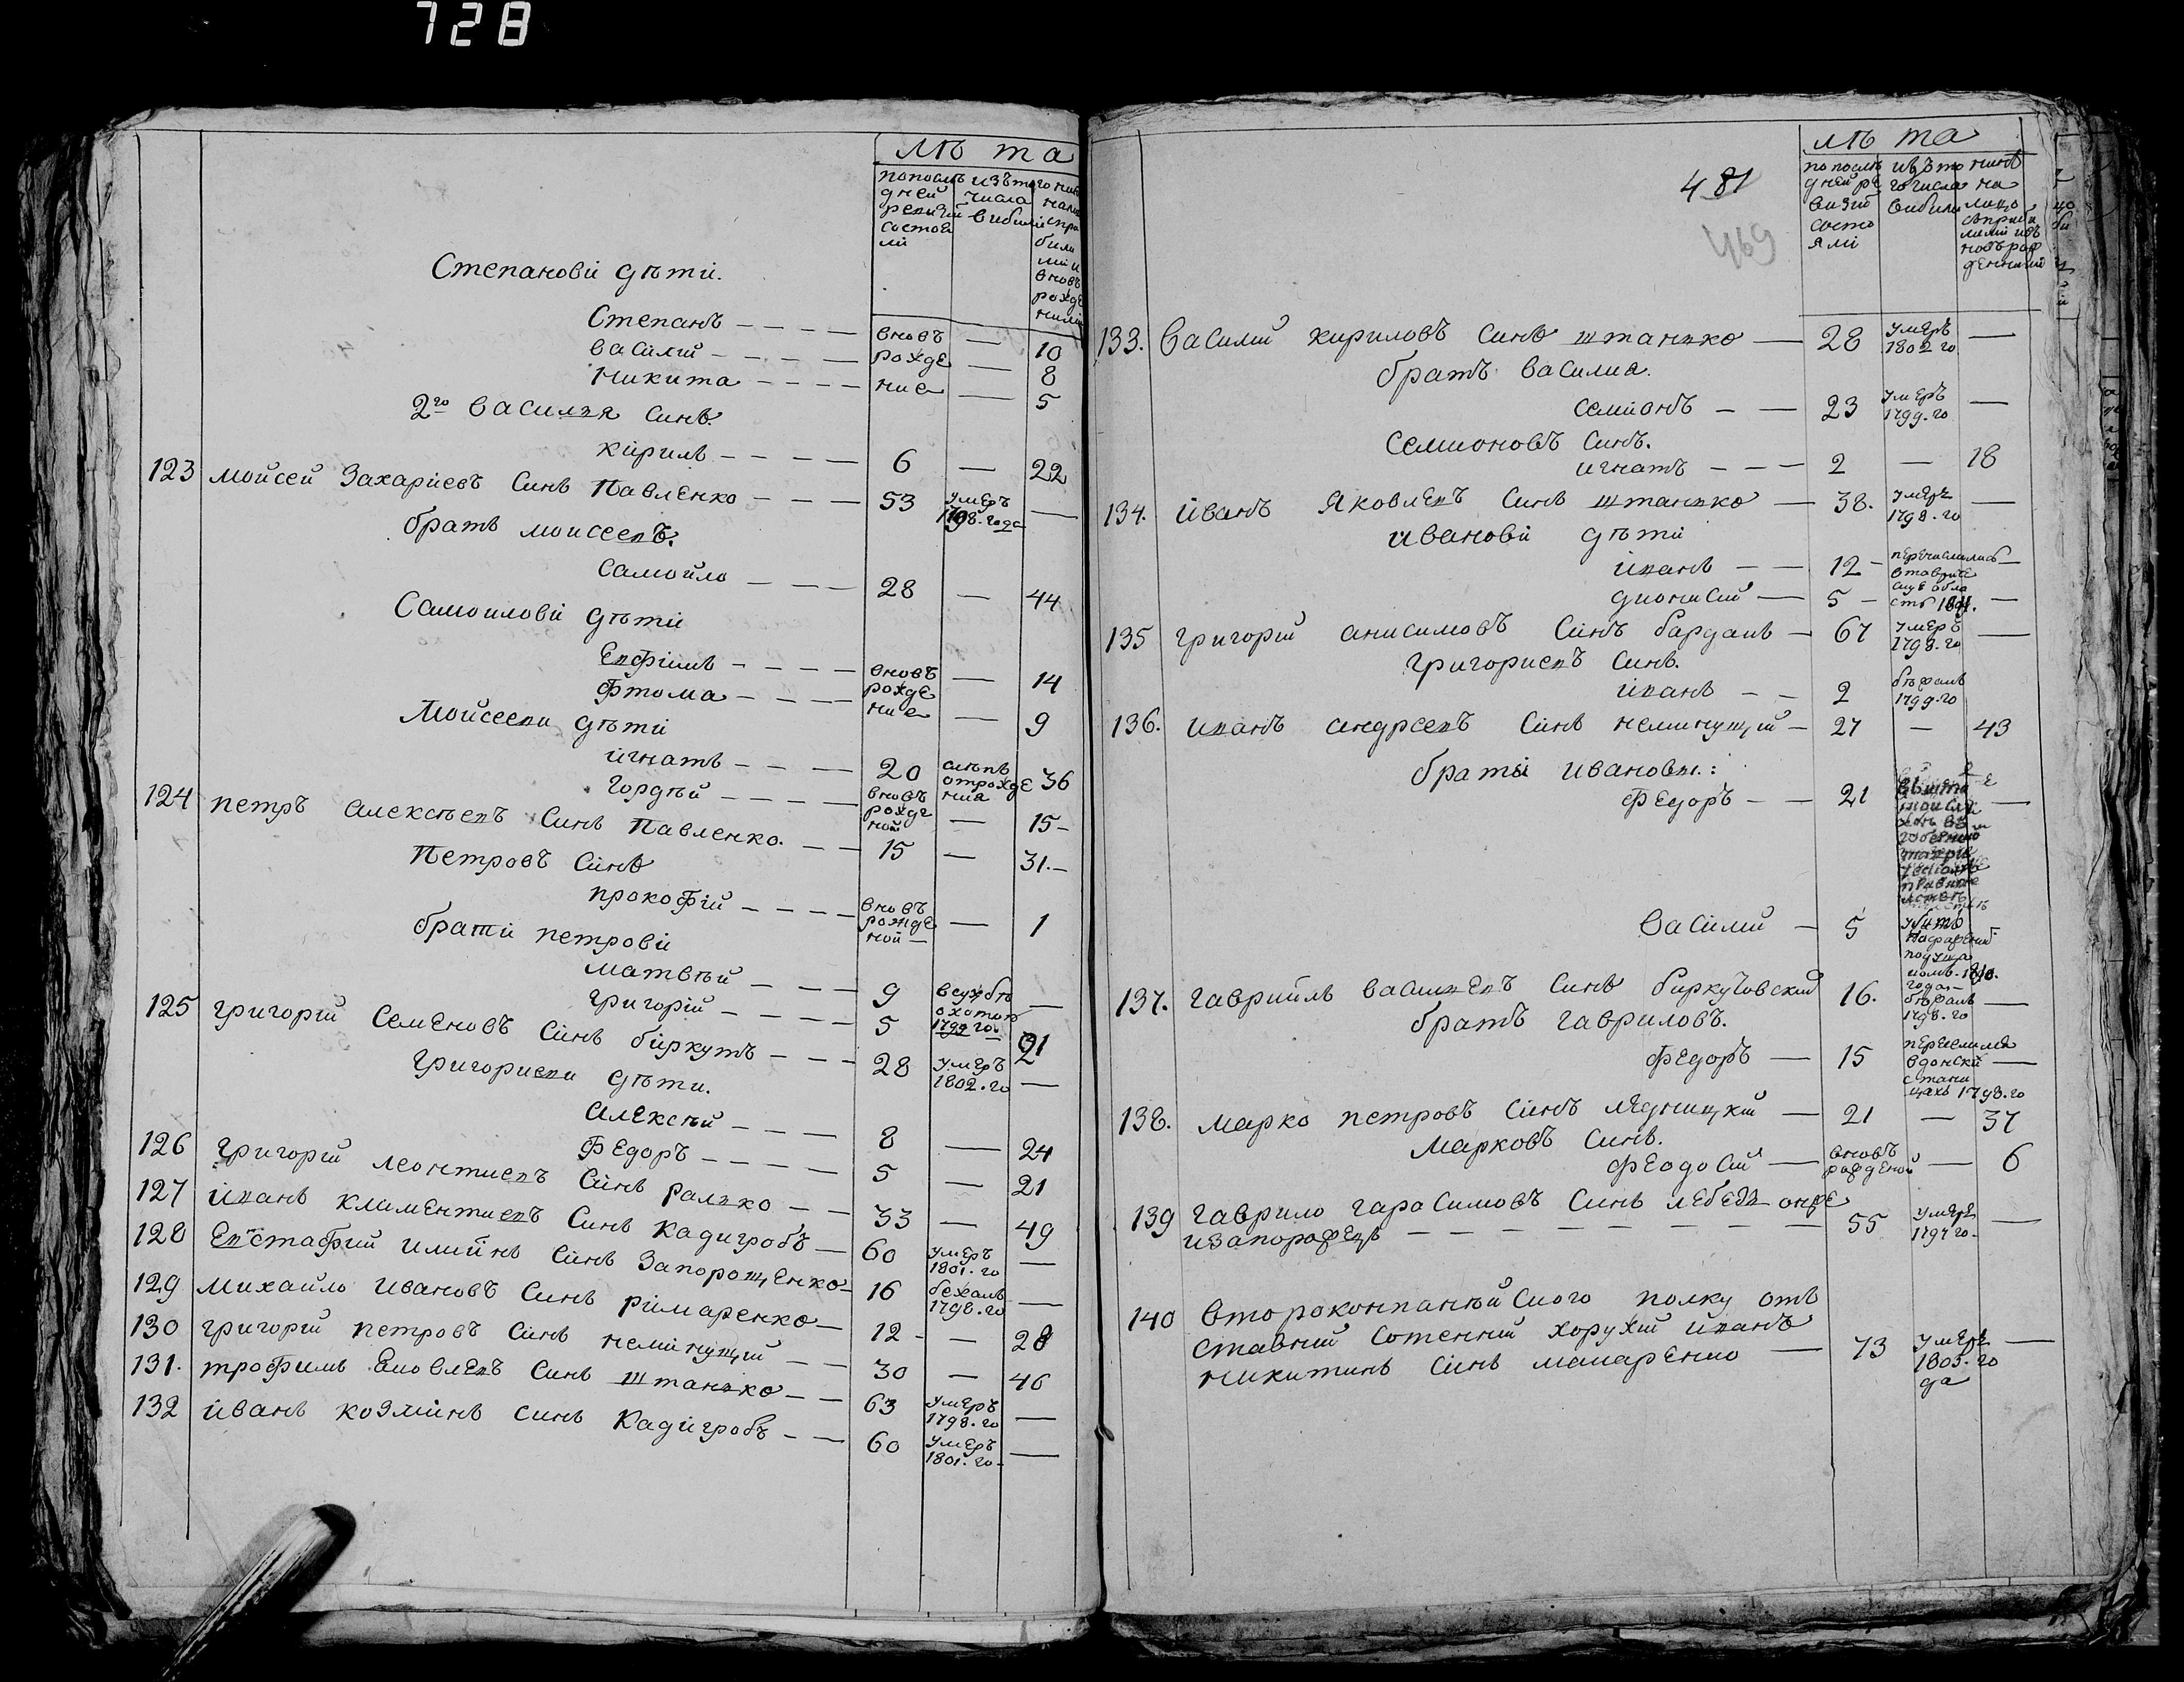 728
лѣ та
попослѣ дней ревизій состоя ли
изъ того числа вибили
Степановіи дѣти.
Степанъ — — — — вновь — 10
василій — — — — рожде — 8
Никита — — — — ние — 5
2го василия синъ.
кирилъ — — — — 6 — 22
123 мойсей Захаріевъ Синъ Павленко — — — 53 умеръ 1798. года —
братъ моисеевъ.
Самойло — — — 28 — 44
Самоиловіи дѣти
Евфимъ — — — — вновь — 14
Фтома — — — рожде ние — 9
Мойсееви дѣти
игнатъ — — — — 20 слѣпъ отрожде ния 36
Гордѣй — — — — вновь рожде ной — 15 —
124 петръ алексѣевъ Синъ Павленко. — — 15 — 31. —
Петровъ Синъ
прокофій — — — — вновь рожде ной — — 1
братіи петровіи
матвѣй — — — — 9 —
григорій — — — — 5 — 21
125 григорій Семеновъ Синъ біркутъ — — — 28 умеръ 1802. го —
григориеви дѣти.
алексѣй — — — — 8 — 24
Федоръ — — — — 5 — 21
126 григорій леонтиевъ Синъ ралко — — 33 — 49
127 иванъ климентиевъ Синъ кадигробъ — 60 умеръ 1801. го —
128 Евстафий илиинъ Синъ Запорощенко — 16 бежалъ 1798. го —
129 михайло ивановъ Синъ римаренко — 12 — — 28
130 григорій петровъ Синъ неминущій — — 30 — 46
131. трофимъ яковлевъ Синъ штанько — — 63 умеръ 1798. го —
132 иванъ козминъ синъ кадигробъ — — 60 умеръ 1801. го —
481
469
лѣ та
по послѣ дней ре визий состо яли
изъ то го числа вибили
133. василий кириловъ синъ штанько — 28 умеръ 1802 го —
братъ василия.
семионъ — — 23 умеръ 1799. го —
семионовъ синъ.
игнатъ — — — 2 — 18
134. иванъ яковлевъ Синъ штанько — 38. умеръ 1798. го —
ивановіи дѣти
иванъ — — 12 — перечислились —
дионисий — 5 — —
135 григорій анисимовъ Синъ бардакъ — 67 умеръ 1798. го —
григориевъ Синъ.
иванъ — — 2 бѣжалъ 1799. го
136. иванъ андреевъ Синъ неминущій — 27 — 43
братья ивановы.:
федоръ — — 21 —
василий — 5
137. гаврийлъ василиевъ Синъ биркутовский 16. бѣжалъ 1798. го —
братъ гавриловъ.
федоръ — 15 вдонски —
стани цахъ 1798. го
138. марко петровъ Синъ лѣдницкій — 21 — 37
марковъ Синъ.
феодосий — вновь рожденой — 6
139 гаврило гарасимовъ Синъ лебедь онже
изапорожецъ — — — — — — — 55 умеръ 1797 го —
140 второконпанѣйского полку отъ
ставний Сотенний хоружий иванъ
никитинъ Синъ макаренко — 73 умеръ 1805. го да —